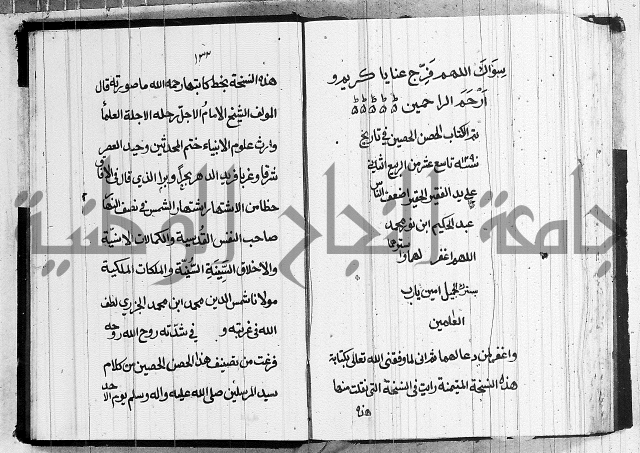 سواك اللهم فرج عنا يا كريم و
أرحم الراحمين
تم الكتاب الحصن الحصين في تاريخ
١٢٩٠ تاسع عشر من الربيع الثاني
على يد الفقير الحقير اضعف الناس
عبد الحكيم ابن نور محمد
اللهم اغفر لهما و
سترك الجميل امين يا رب
العلمين
واغفر لمن دعا لهما ثم اني لما وفقني الله تعالى بكتابة
هذه النسخة الميمنة رايت في النسخة التي نقلت منها
هذه
١٣٢
هذه النسخة بخط كاتبها رحمه الله ما صورته قال
المولف الشيخ الامام الاجل رحله الاجلة العلماء
وارث علوم الانبياء ختم المحدثين وحيد العصر
شرقا وغربا فريد الدهر بحرا وبرا الذي قال في الآفاق
حظا من الاشتهار اشتهار الشمس في نصف النهار
صاحب النفس القدسية والكمالات الانسية
والاخلاق السنية السنية والملكات الملكية
مولانا شمس الدين محمد ابن محمد الجزري لطف
الله في غربته و في شدته روح الله روحه
فرغت من تصنيف هذا الحصن الحصين من كلام
سيد المرسلين صلى الله عليه واله وسلم يوم الاحد
جامعة النجاح الوطنية